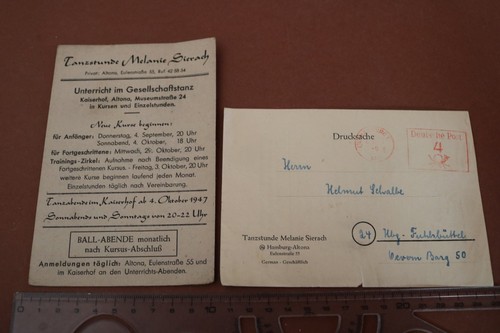 Tanzstunde Melanie Sierach
Privat: Altona, Eulenstraße 55, Ruf 42 58 54
Unterricht im Gesellschaftstanz
Kaiserhof, Altona, Museumstraße 24
in Kursen und Einzelstunden.
Neue Kurse beginnen:
für Anfänger: Donnerstag, 4. September, 20 Uhr
Sonnabend, 4. Oktober, 18 Uhr
für Fortgeschrittene: Mittwoch, 29. Oktober, 20 Uhr
Trainings-Zirkel: Aufnahme nach Beendigung eines
Fortgeschrittenen Kursus - Freitag, 3. Oktober, 20 Uhr
weitere Kurse beginnen laufend jeden Monat.
Einzelstunden täglich nach Vereinbarung.
Tanzabende im Kaiserhof ab 4. Oktober 1947
Sonnabends und Sonntags von 20-22 Uhr
BALL-ABENDE monatlich
nach Kursus-Abschluß
Anmeldungen täglich: Altona, Eulenstraße 55 und
im Kaiserhof an den Unterrichts-Abenden.
Drucksache
Deutsche Post
4
Herrn
Helmut Schalbe
Tanzstunde Melanie Sierach
Hamburg-Altona
Eulenstraße 55
German - Geschäftlich
24 Hbg.-Fuhlsbüttel
50